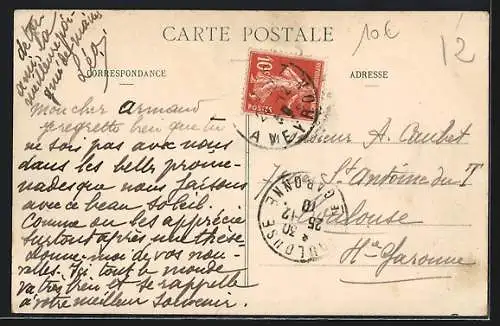 de ton
ami, la
meilleure poi-
gnée de mains
Léo.
CARTE POSTALE
10€
12
CORRESPONDANCE
ADRESSE
10c
POSTES
AVEYRON
Mon cher Armand
je regrette bien que tu
ne sois pas avec nous
dans les belles prome-
nades que nous faisons
avec ce beau soleil.
Comme on les apprécie
surtout après une thèse.
donne-moi de vos nou-
velles. Ici tout le monde
va très bien et se rappelle
à votre meilleur souvenir.
Monsieur A. Caubet
St Antoine du T
Toulouse
Hte Garonne
TOULOUSE
Hte GARONNE
* 30
25-12
10